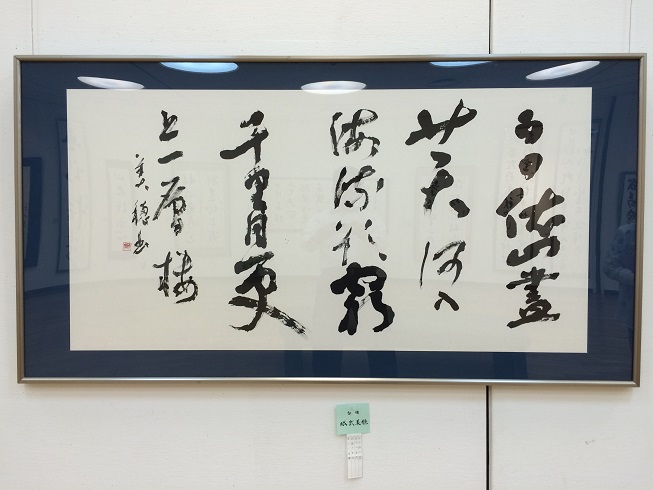 白日依山盡
黄河入
海流欲窮
千里目更
上一層楼
美穂書